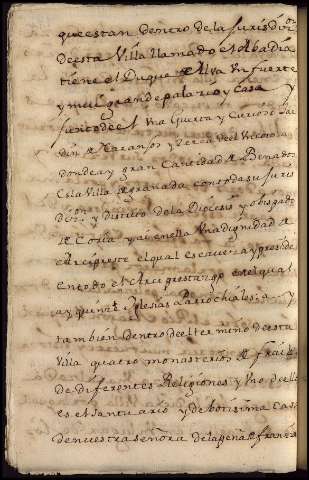 que estan dentro de la Jurisdi.on
de esta Villa llamado el Abadia
tiene el Duque de Alva Un fuerte
y mui grande palacio y Casa y
junto de el Una Guerta y Curioso Jar
din de Naranjos y cerca de el Un coto
donde ay gran Cantidad de Benados
Es la Villa de Granada con toda su Juris
d.on y distrito de la Diocesis y obispado
de Coria y ai en ella Una dignidad de
Arcipreste el qual es cavera y preside
en todo el Arciprestazgo en el qual
ay Iglesias Parrochiales y
tambien dentro de el termino de esta
Villa quatro monasterios de frailes
de diferentes Religiones y Uno de ellos
es el santuario y debotisima Casa
de nuestra señora de la peña de francia